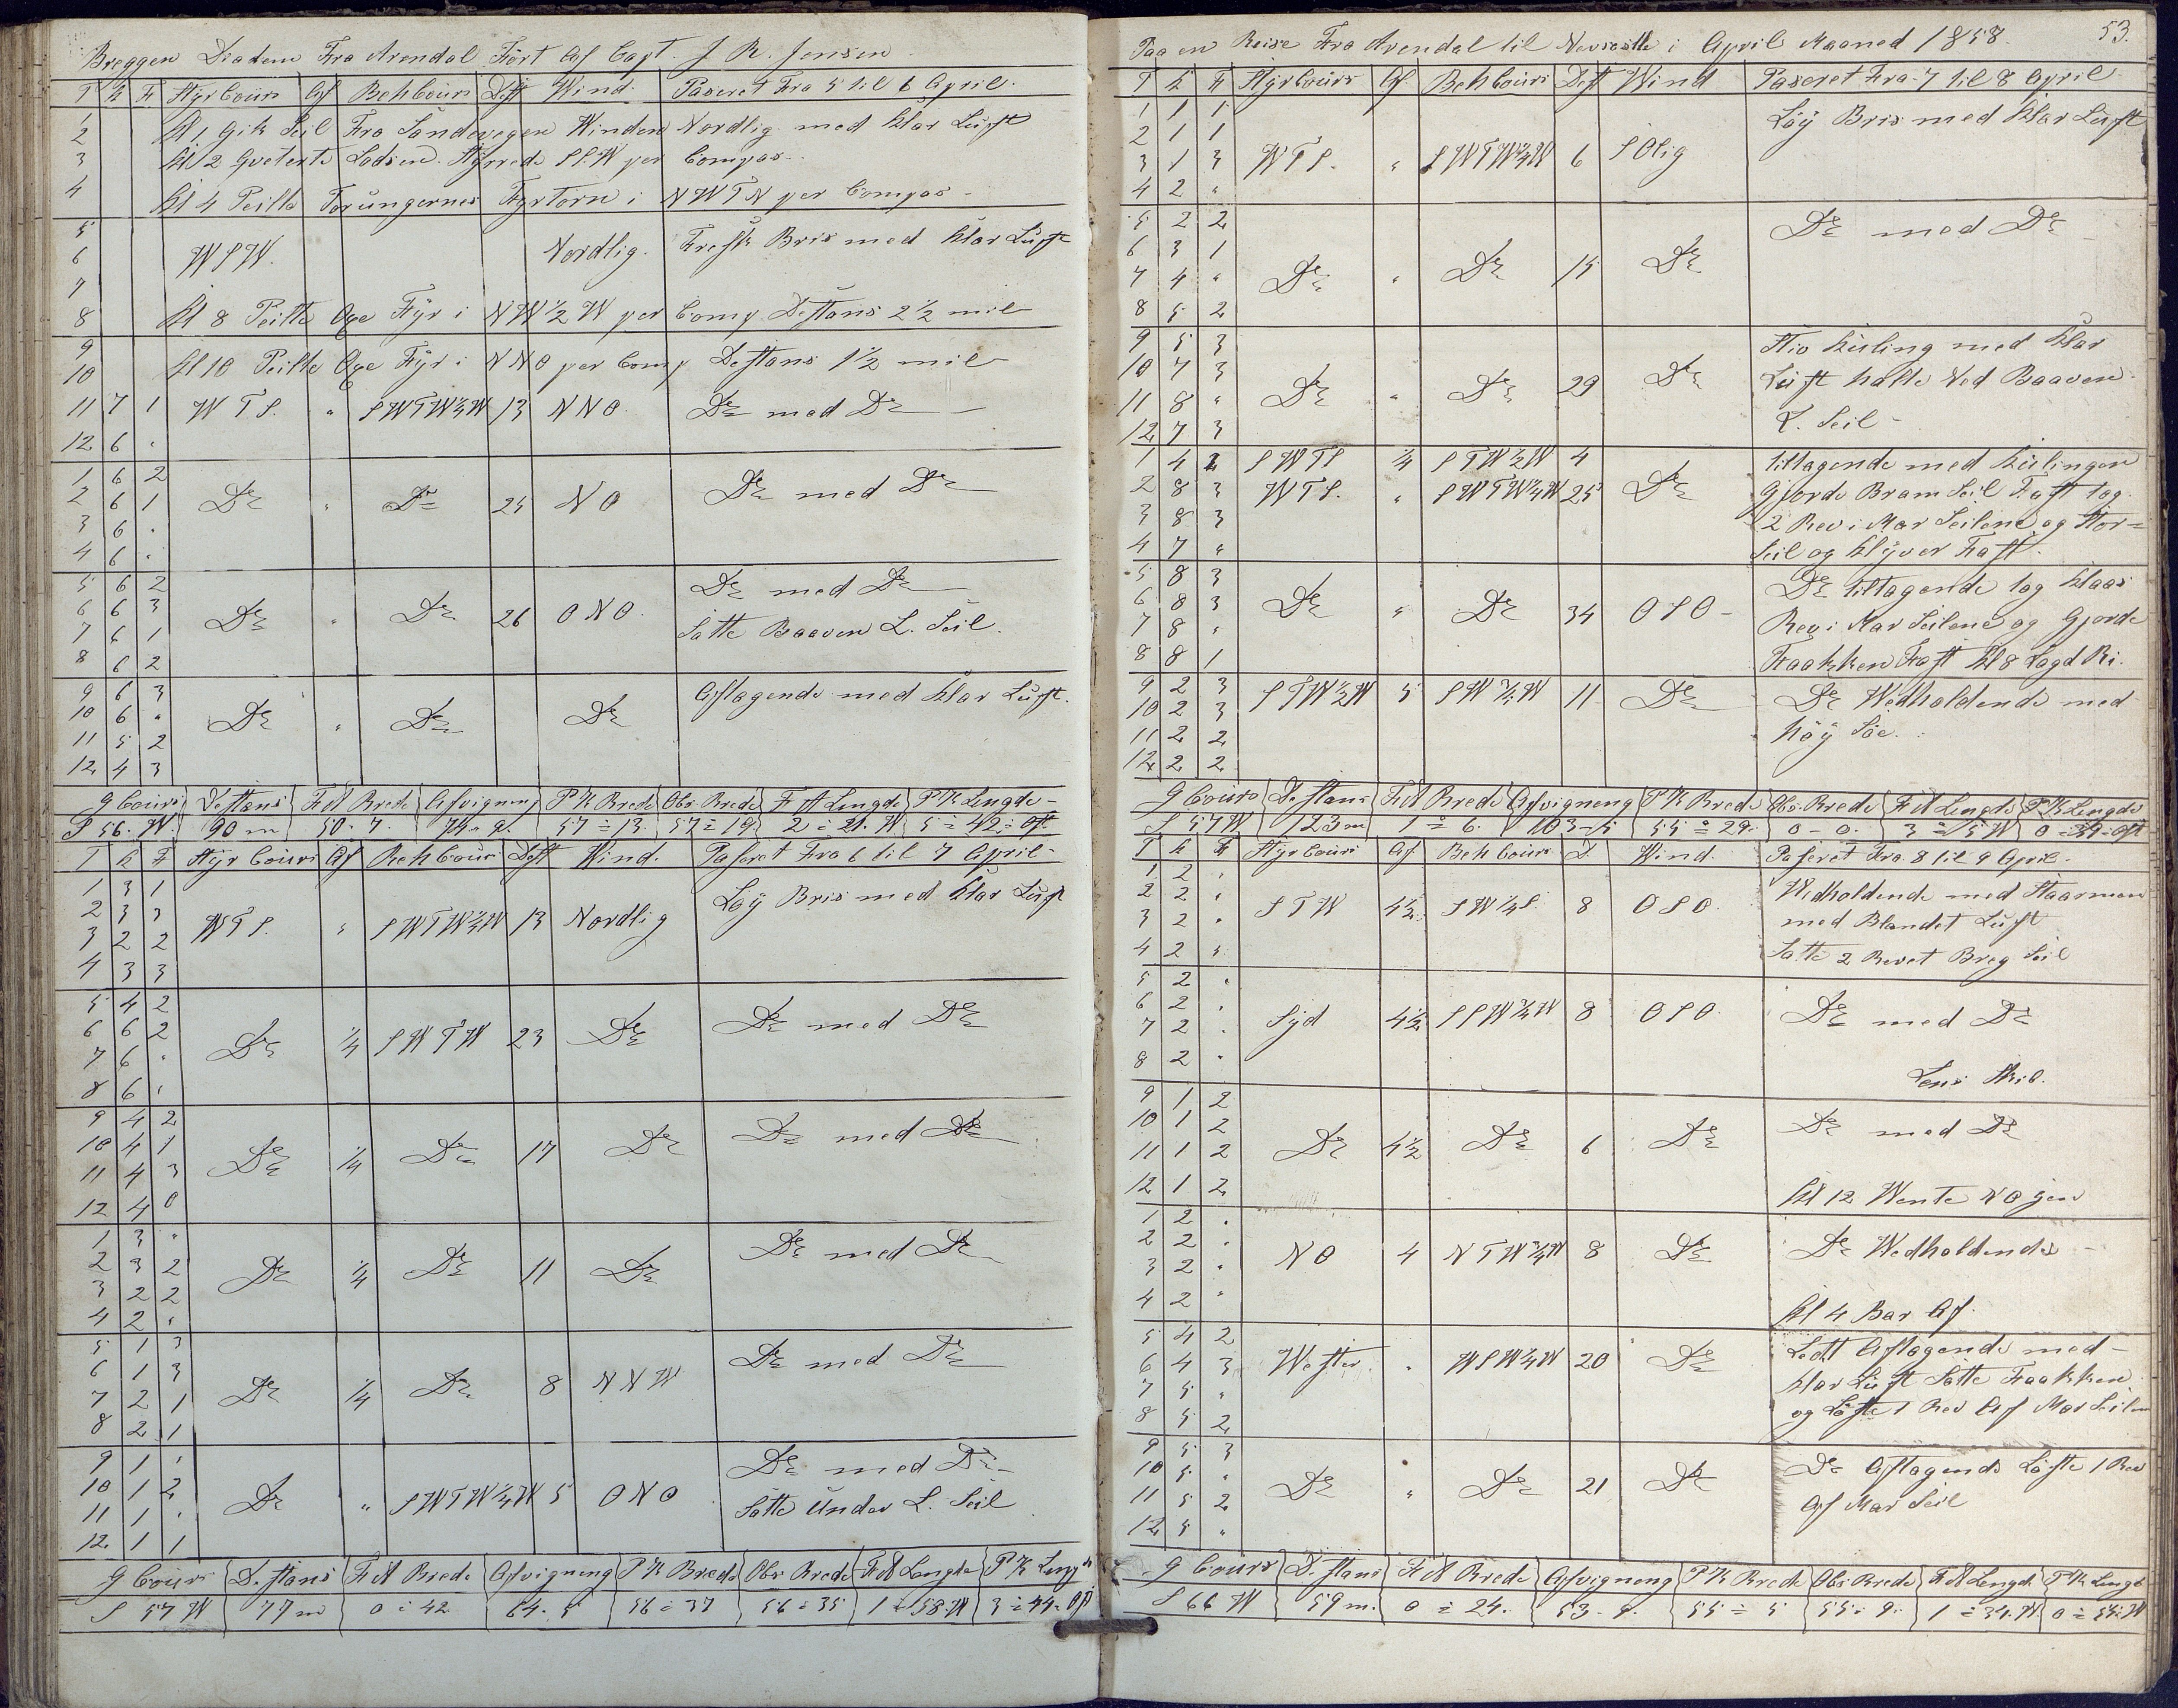 Breggen Diadem Fra Arendal Fört Af Capt. J R. Jensen
T K F Styr Cours Af Beh Cours Dest Wind. Paseret Fra 5 til 6 April.
1
2 Kl 1 Gik Seil Fra Sandevigen Winden Nordlig med klar Luft
3 Kl 2 Qveterte Lodsen. Styrrede SSW per Compas.
4 Kl 4 Peilte Torungernes Fyrtorn i NWTN per Compas -
5
6 WSW. Nordlig. Fresk Bris med klar Luft
7
8 Kl 8 Peilte Oxe Fyr i NW½W per Comp Destans 2½ mil
9
10 Kl 10 Peilte Oxe Fyr i NNO per Comp Destans 1½ mil
11 7 1 WTS. " SWTW¾W 13 NNO. Do med Do
12 6 "
1 6 2
2 6 1 Do " Do 25 NO Do med Do
3 6 "
4 6 "
5 6 2 Do med Do
6 6 3 Do " Do 26 ONO.
7 6 1 Satte Baaven L. Seil.
8 6 2
9 6 3 Aftagende med klar Luft.
10 6 " Do " Do Do
11 5 2
12 4 3
G Cours Destans FA Brede Afvigning PK Brede Obs. Brede FA Lengde PK Lengde
S 56. W. 90 m 50. 7. 74. 9. 57 = 13. 57 = 19. 2 = 21. W 5 = 42 = Ost.
T K F Styr Cours Af Beh Cours Dest Wind. Paseret Fra 6 til 7 April
1 3 1 Löy Bris med klar Luft
2 3 3 WTS. " SWTW¾W 13 Nordlig
3 2 2
4 3 3
5 4 2
6 6 2 Do ¼ SWTW 23 Do Do med Do
7 6 "
8 6 "
9 4 2 Do med Do
10 4 1 Do ¼ Do 17 Do
11 4 3
12 4 0
1 3 " Do med Do
2 3 2 Do ¼ Do 11 Do
3 2 2
4 2 "
5 1 3 Do med Do
6 1 3
7 2 1 Do ¼ Do 8 NNW
8 2 1
9 1 " Do med Do
10 1 2 Do " SWTW¾W 5 ONO
11 1 " Satte Under L. Seil
12 1 1
G Cours Destans FA Brede Afvigning PK Brede Obs Brede FA Lengde PK Lengde
S 57 W 77 m 0 = 42 64. 5 56 = 37 56 = 35 1 = 58. W 3 = 44 = Ost
53.
Paa en Reise Fra Arendal til Nevcastle i April Maaned 1858.
T K F Styr Cours Af Beh Cours Dest Wind Paseret Fra 7 til 8 April
1 1 1 Löy Bris med klar Luft
2 1 1
3 1 3 WTS. " SWTW¾W 6 SOlig
4 2 "
5 2 2 Do med Do
6 3 1
7 4 " Do " Do 15 Do
8 5 2
9 5 3 Stiv Kuling med klar
10 7 3 Luft halte Ned Baaven
11 8 " Do " Do 29 Do
12 7 3 L. Seil
1 4 2 SWTS ¼ STW½W 4 tiltagende med Kulingen
2 8 3 WTS. " SWTW¾W 25 Do Gjorde Bram Seil Fast tog
3 8 3 2 Rev i Mar Seilene og Stor=
4 7 " Seil og Klyver Fast.
5 8 3 Do tiltagende tog Klaas
6 8 3 Do " Do 34 OSO Rev i Mar Seilene og Gjorde
7 8 "
8 8 1 Faakken Fast Kl 8 Lagd Bi.
9 2 3 STW½W 5 SW¾W 11 Do Do Wedholdende med
10 2 3
11 2 2 höy Söe.
12 2 2
G Cours Destans FA Brede Afvigning PK Brede Obs. Brede FA Lengde PK Lengde
S 57 W 123 m 1 = 6. 103 - 5 55 = 29. 0 - 0. 3 = 5 W 0 = 39 = Ost
T K F Styr Cours Af Beh Cours D. Wind. Paseret Fra 8 til 9 April
1 2 " Wedholdende med Staarmen
2 2 " STW 4½ SW¼S. 8 OSO. med Blandet Luft
3 2 "
4 2 " Satte 2 Revet Breg Seil
5 2 "
6 2 " Syd 4½ SSW¾W 8 OSO. Do med Do
7 2 "
8 2 " Lens Skib.
9 1 2
10 1 2 Do med Do
11 1 2 Do 4½ Do 6 Do
12 1 2 Kl 12 Wente NO gen
1 2 "
2 2 " NO 4 NTW¾W 8 Do Do Wedholdende
3 2 "
4 2 " Kl 4 Bar Af.
5 4 2 Ledt Aftagende med
6 4 3 Wester. " WSW¾W 20 Do klar Luft Satte Faakken
7 5 "
8 5 2 og Löste 1 Rev Af Mar Seilen
9 5 3 Do Aftagende Löste 1 Rev
10 5 " Do " Do 21 Do
11 5 2 Af Mar Seil
12 5 "
G Cours Destans FA Brede Afvigning PK Brede Obs Brede FA Lengde PK Lengde
S 66 W 59 m. 0 = 24. 53. 9. 55 = 5 55 = 9. 1 = 34. W. 0 = 55 = W